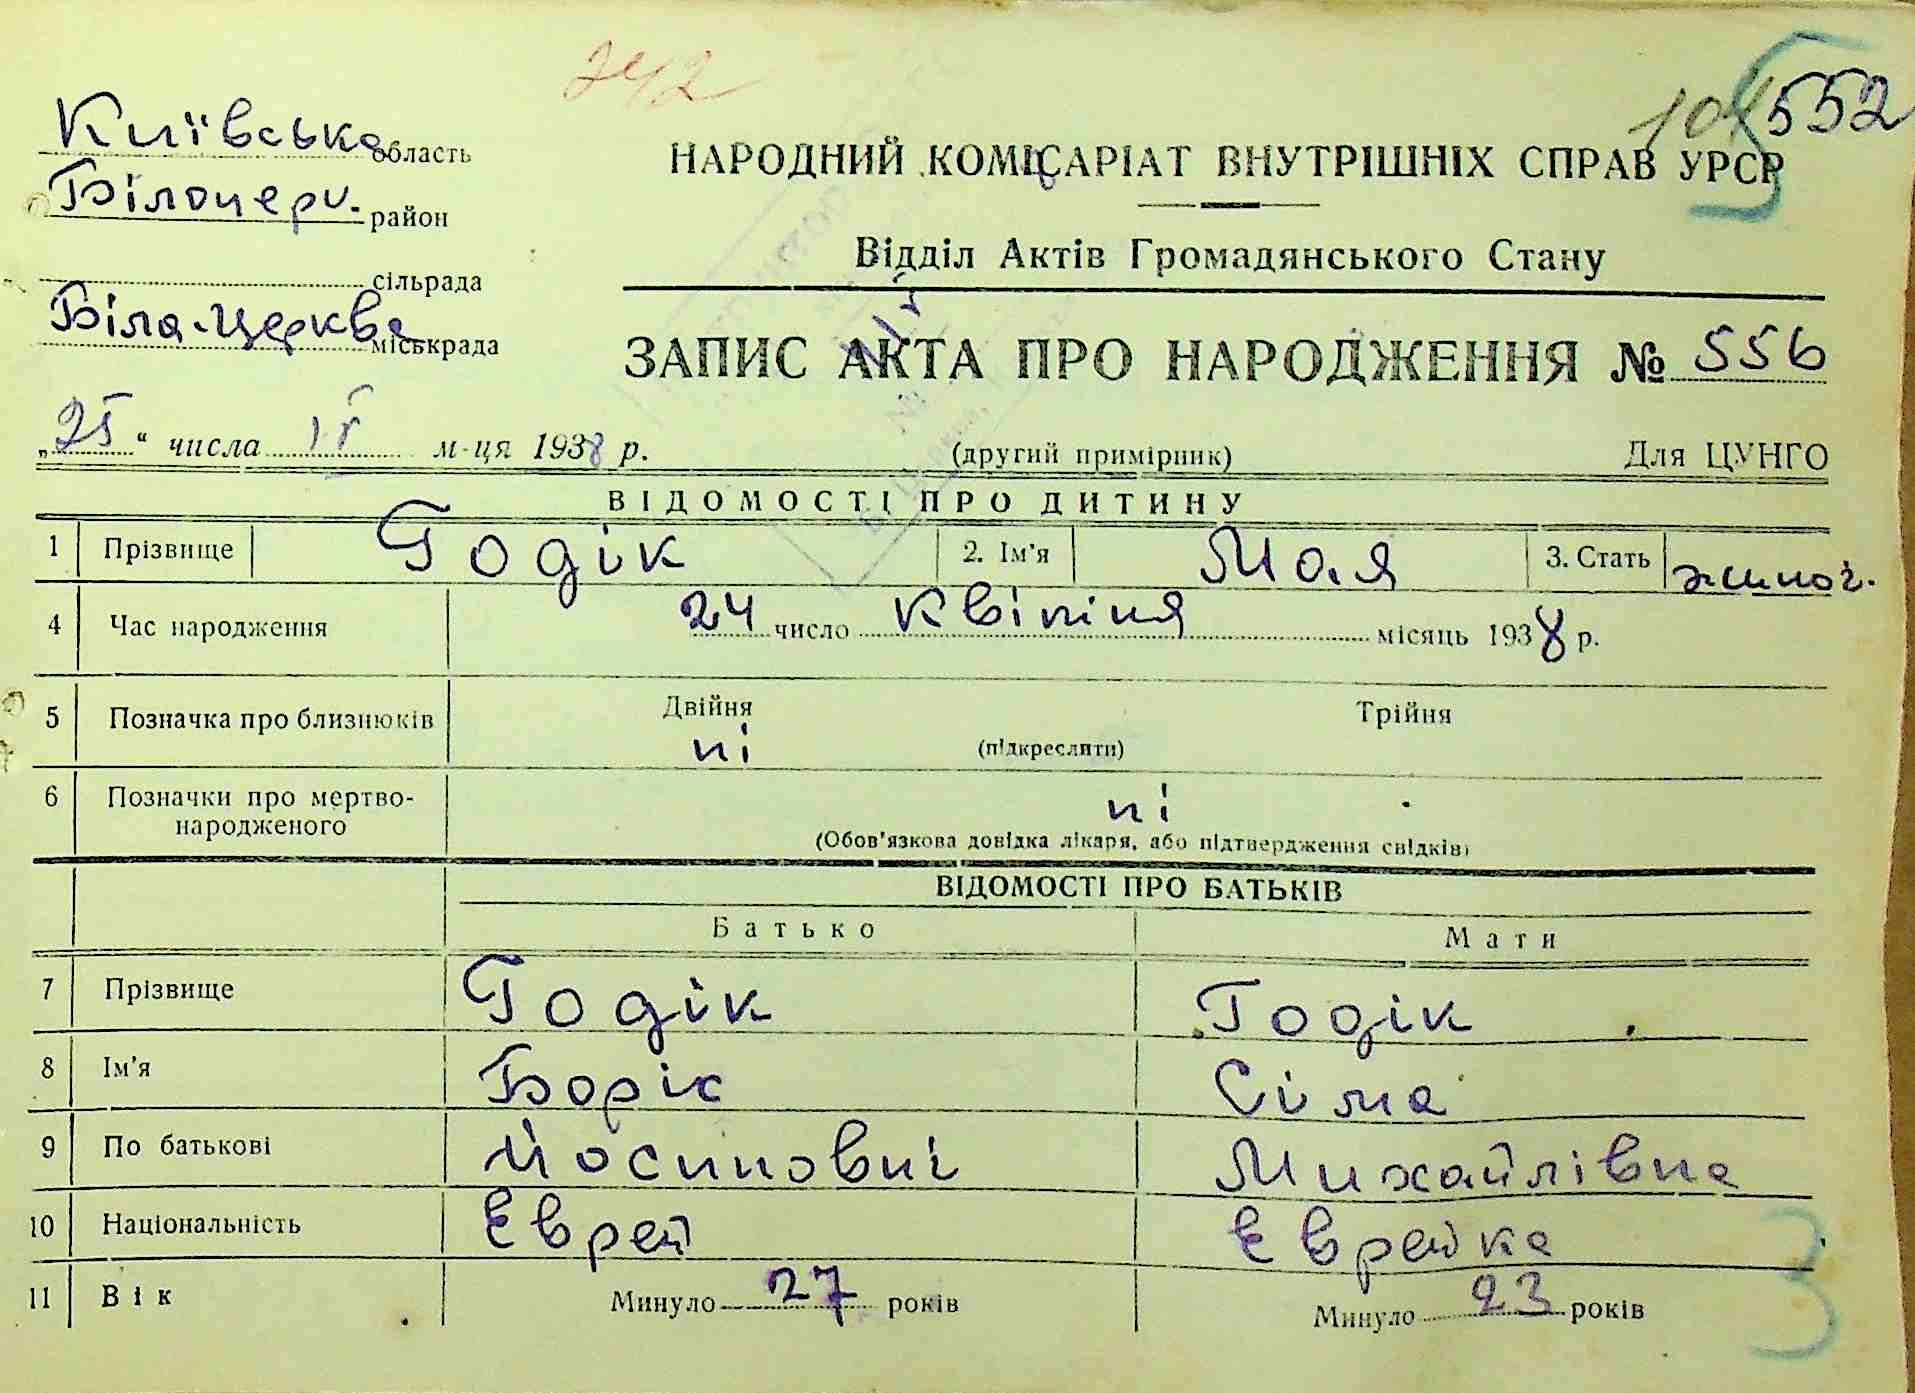 242
552
Київська область
НАРОДНИЙ КОМІСАРІАТ ВНУТРІШНІХ СПРАВ УРСР
Білоцерк. район
Відділ Актів Громадянського Стану
сільрада
Біла-Церква міськрада
ЗАПИС АКТА ПРО НАРОДЖЕННЯ № 556
„25“ числа IV м-ця 1938 р. (другий примірник) Для ЦУНГО
ВІДОМОСТІ ПРО ДИТИНУ
1 Прізвище Годік 2. Ім'я Мая 3. Стать жіноч.
4 Час народження 24 число Квітня місяць 1938 р.
5 Позначка про близнюків Двійня Трійня
ні (підкреслити)
6 Позначки про мертво-
народженого ні
(Обов'язкова довідка лікаря, або підтвердження свідків)
ВІДОМОСТІ ПРО БАТЬКІВ
Батько Мати
7 Прізвище Годік Годік
8 Ім'я Боріс Сіма
9 По батькові Йосипович Михайлівна
10 Національність Єврей Єврейка
11 Вік Минуло 27 років Минуло 23 років